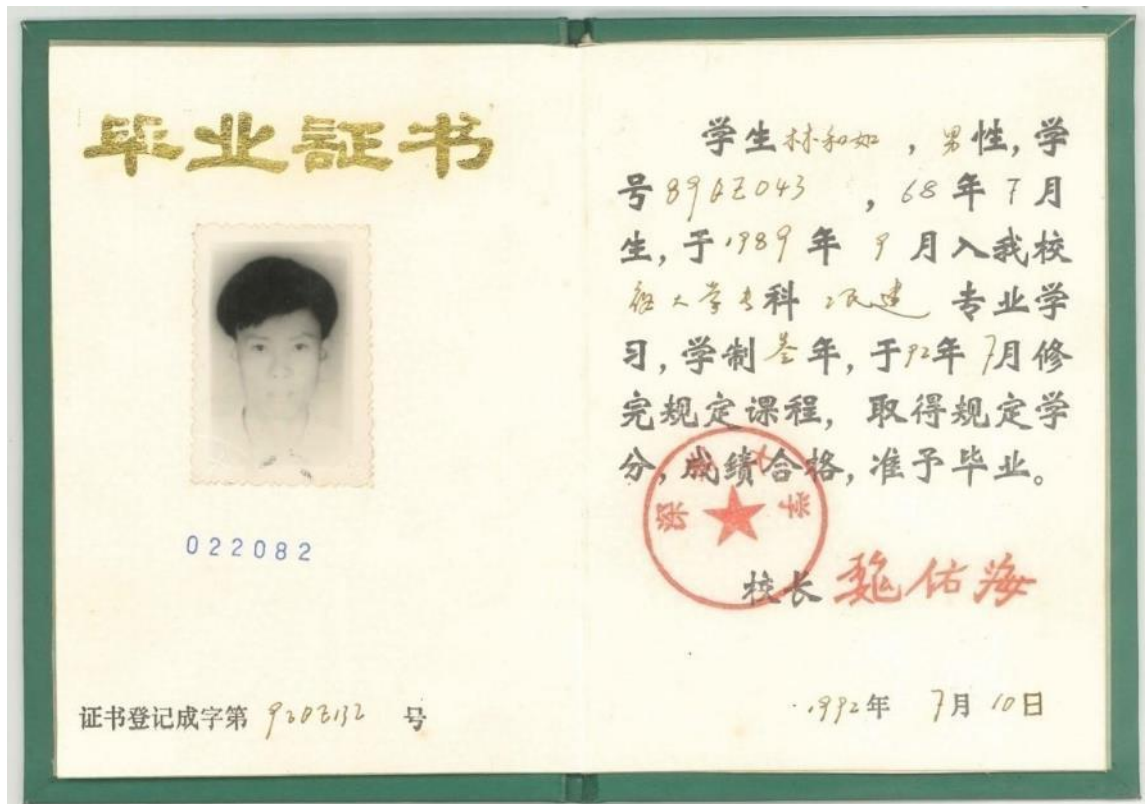 毕业証书
022082
证书登记成字第 920Z132 号
学生林和如，男性，学
号 89AZ043 ，68年7月
生，于1989年 9月入我校
大学专科 专业学
习，学制叁年，于92年7月修
完规定课程，取得规定学
分，成绩合格，准予毕业。
深 大学
校长 魏佑海
1992年 7月 10日